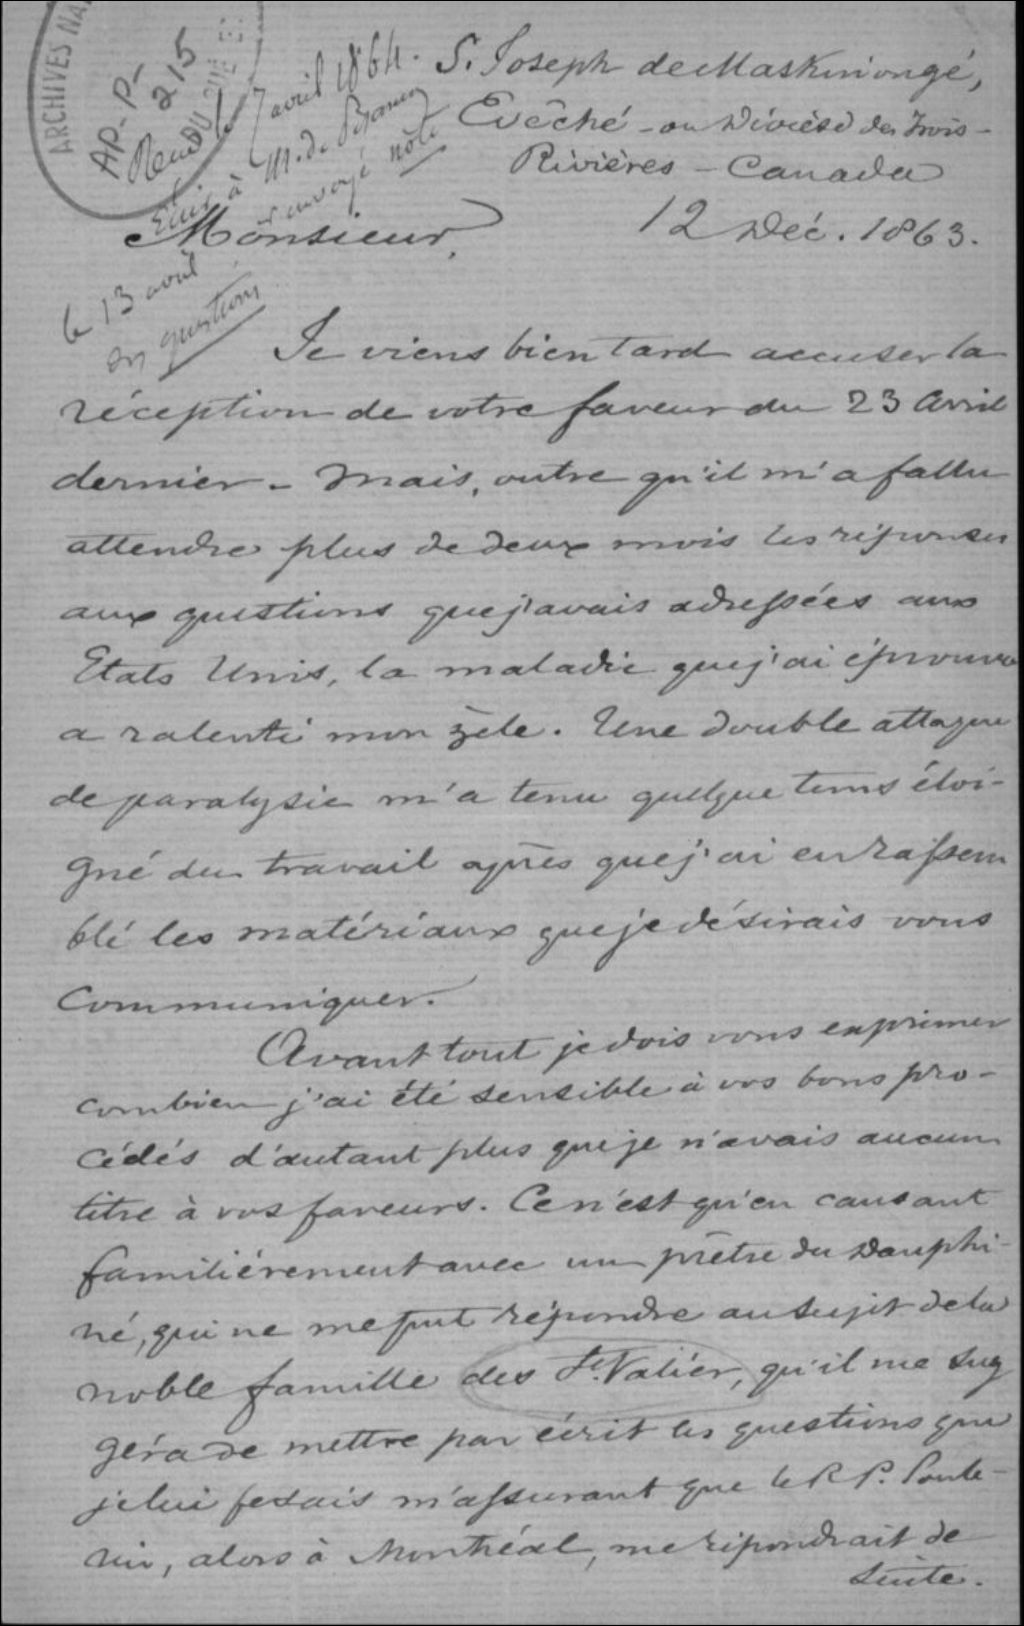 ARCHIVES NA
AP-P-
215
DU
7 avril 1864.
Ecrit à M. de
envoyé note
le 13 avril
questions
S. Joseph de Maskinongé,
Evêché - ou Diocèse des Trois-
Rivières - Canada
12 Déc. 1863.
Monsieur,
Je viens bien tard accuser la
réception de votre faveur du 23 Avril
dernier - Mais, outre qu'il m'a fallu
attendre plus de deux mois les réponses
aux questions que j'avais adressées aux
Etats Unis, la maladie que j'ai éprouvée
a ralenti mon zèle. Une double attaque
de paralysie m'a tenu quelque tems éloi-
gné du travail après que j'ai eu rassem
blé les matériaux que je désirais vous
communiquer.
Avant tout je dois vous exprimer
combien j'ai été sensible à vos bons pro-
cédés d'autant plus que je n'avais aucun
titre à vos faveurs. Ce n'est qu'en causant
familièrement avec un prêtre du Dauphi-
né, qui ne me put répondre au sujet de la
noble famille des St. Valier, qu'il me sug
géra de mettre par écrit les questions que
je lui fesais m'assurant que le R P.
alors à Montréal, me répondrait de
suite.